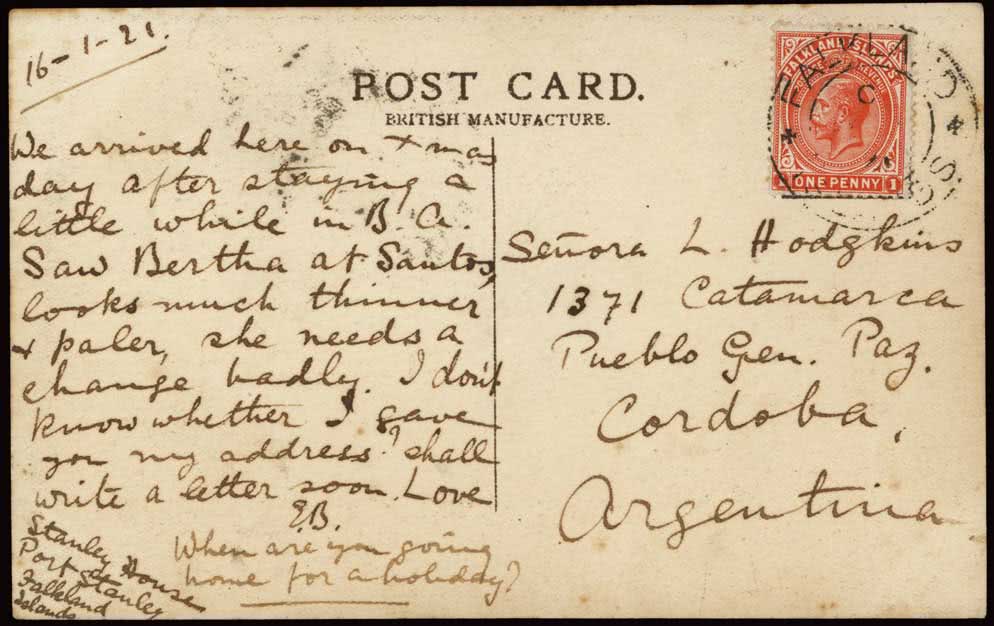 16-1-21.
POST CARD.
BRITISH MANUFACTURE.
FALKLAND ISLANDS
REVENUE
ONE PENNY 1
FALKLAND
We arrived here on Xmas
day after staying a
little while in B. A.
Saw Bertha at Santos,
looks much thinner
& paler, she needs a
change badly. I don't
know whether I gave
you my address? shall
write a letter soon. Love
E.B.
When are you going
home for a holiday?
Stanley House
Port Stanley
Falkland
Islands
Señora L. Hodgkins
1371 Catamarca
Pueblo Gen. Paz.
Cordoba,
Argentina